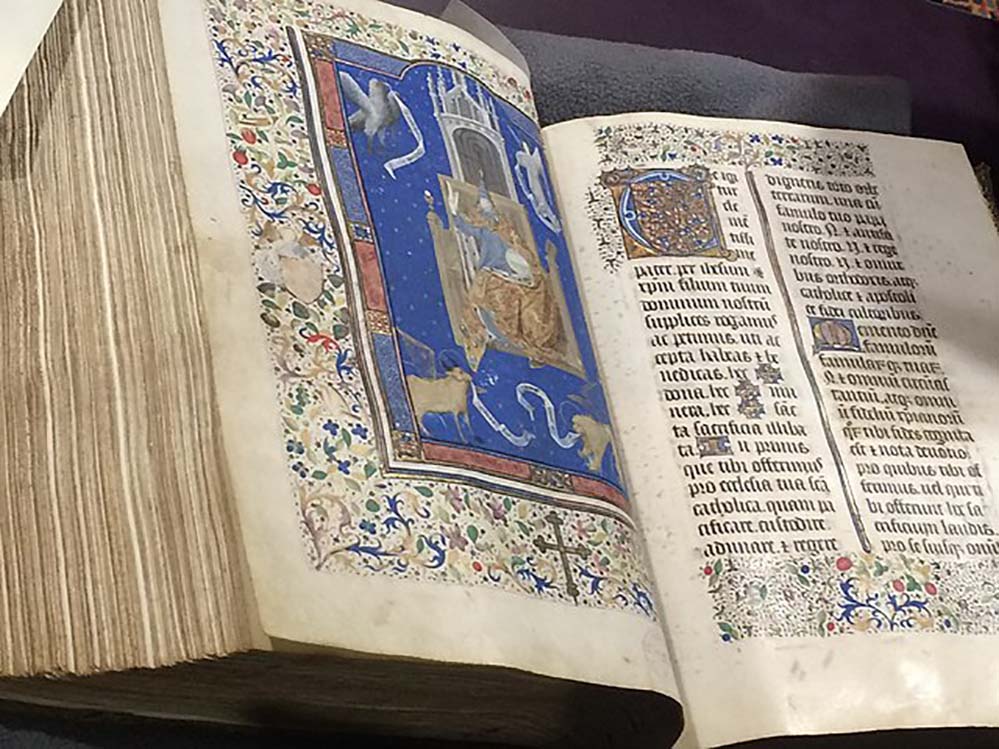 Te igi
tur
cle
mē
tissi
me
pater. per ihesum
xpm filium tuum
dominum nostrū
supplices rogamus
ac petimus. uti ac
cepta habeas ⁊ be
nedicas. hec ✠
dona. hec ✠ mu
nera. hec ✠ sāc
ta sacrificia illiba
ta. In primis
que tibi offerimus
pro ecclesia tua scā
catholica. quam pa
cificare. custodire
adunare. ⁊ regere
digneris toto orbe
terrarum. una cū
famulo tuo papa
nostro N. ⁊ antisti
te nostro. N. ⁊ rege
nostro. N. ⁊ omni
bus orthodoxis. atq;
catholice ⁊ apostoli
ce fidei cultoribus.
Memento dn̄e
famulorū
famularūq; tuar.
N. ⁊ omnium circūs
tantiū. atq; omniū
fideliū xpianorū
qr̄ tibi fides cognita
est ⁊ nota deuotio
pro quibus tibi of
ferimus. uel qui ti
bi offerunt hoc sa
crificium laudis.
pro se suisq; omīb;